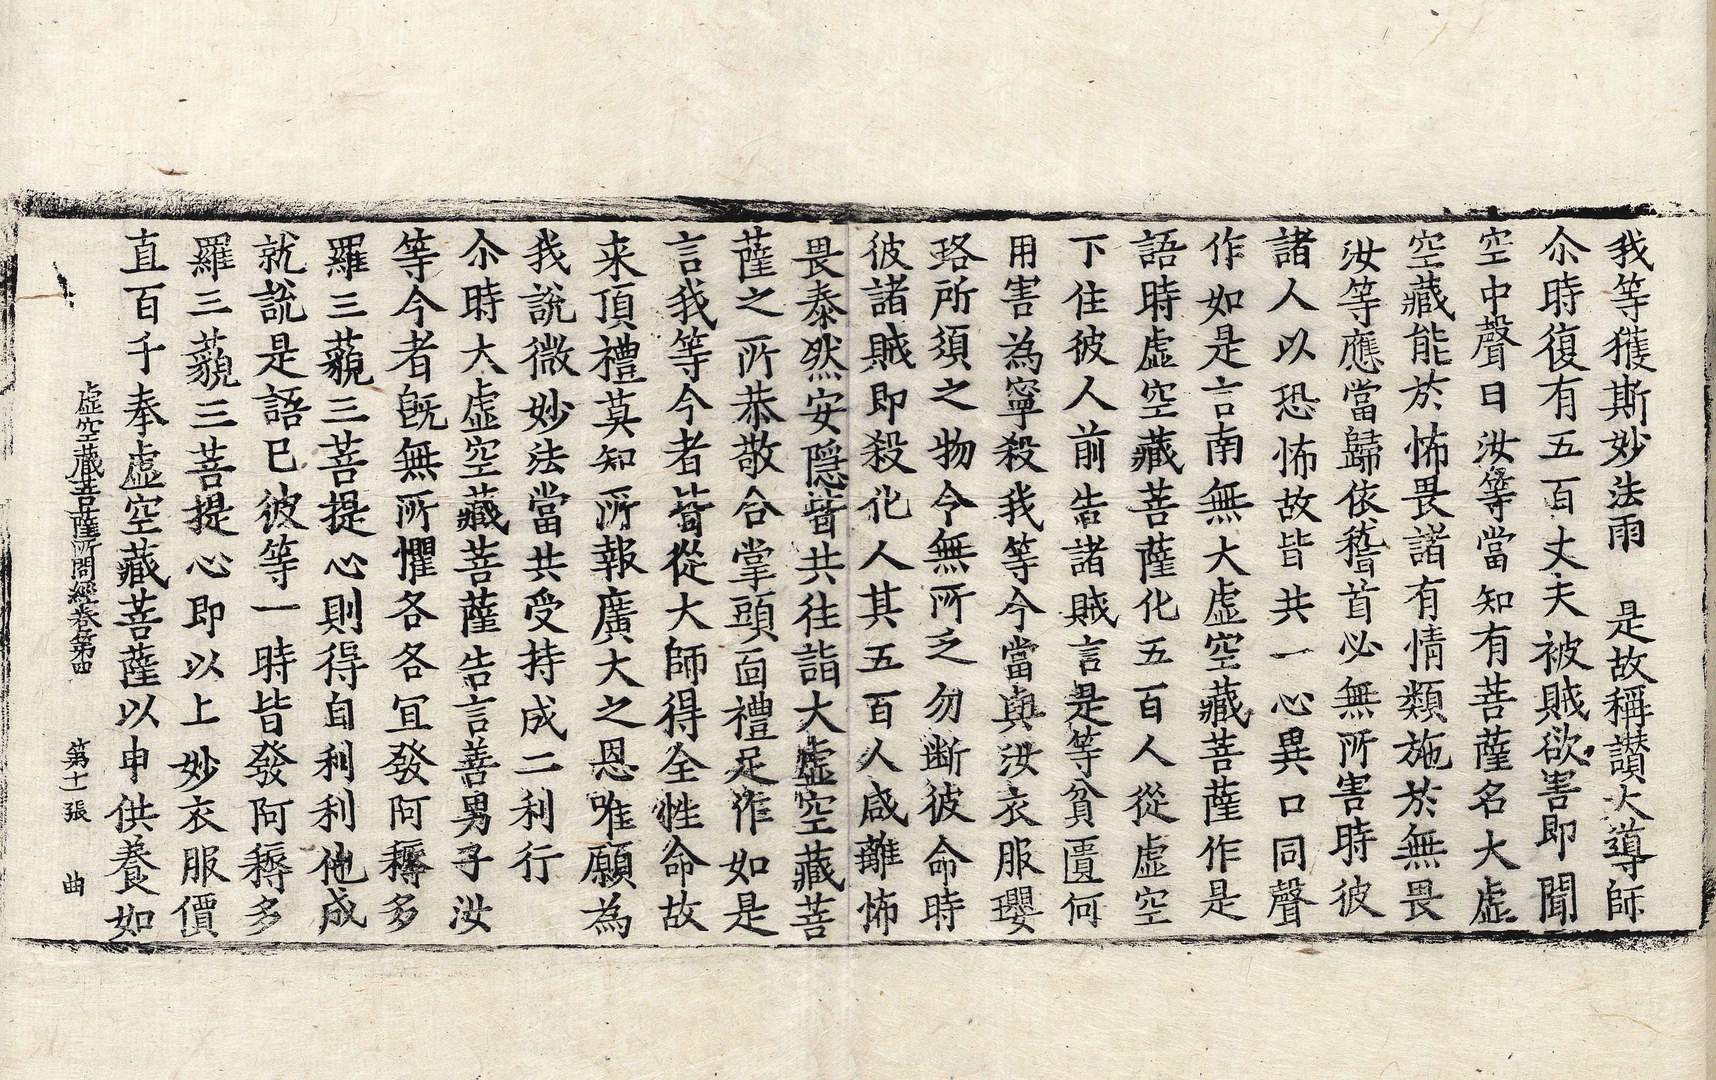 我等獲斯妙法雨　是故稱讃大導師
尒時復有五百丈夫被賊欲害即聞
空中聲曰汝等當知有菩薩名大虛
空藏能於怖畏諸有情類施於無畏
汝等應當歸依稽首必無所害時彼
諸人以恐怖故皆共一心異口同聲
作如是言南無大虛空藏菩薩作是
語時虛空藏菩薩化五百人從虛空
下住彼人前告諸賊言是等貧匱何
用害為寧殺我等今當與汝衣服瓔
珞所須之物令無所乏勿断彼命時
彼諸賊即殺化人其五百人咸離怖
畏泰然安隱皆共往詣大虛空藏菩
薩之所恭敬合掌頭面禮足作如是
言我等今者皆從大師得全性命故
来頂禮莫知所報廣大之恩唯願為
我說微妙法當共受持成二利行
尒時大虛空藏菩薩告言善男子汝
等今者旣無所懼各各冝發阿耨多
羅三藐三菩提心則得自利利他成
就說是語已彼等一時皆發阿耨多
羅三藐三菩提心即以上妙衣服價
直百千奉虛空藏菩薩以申供養如
虛空藏菩薩所問經卷第四　第十一張　曲